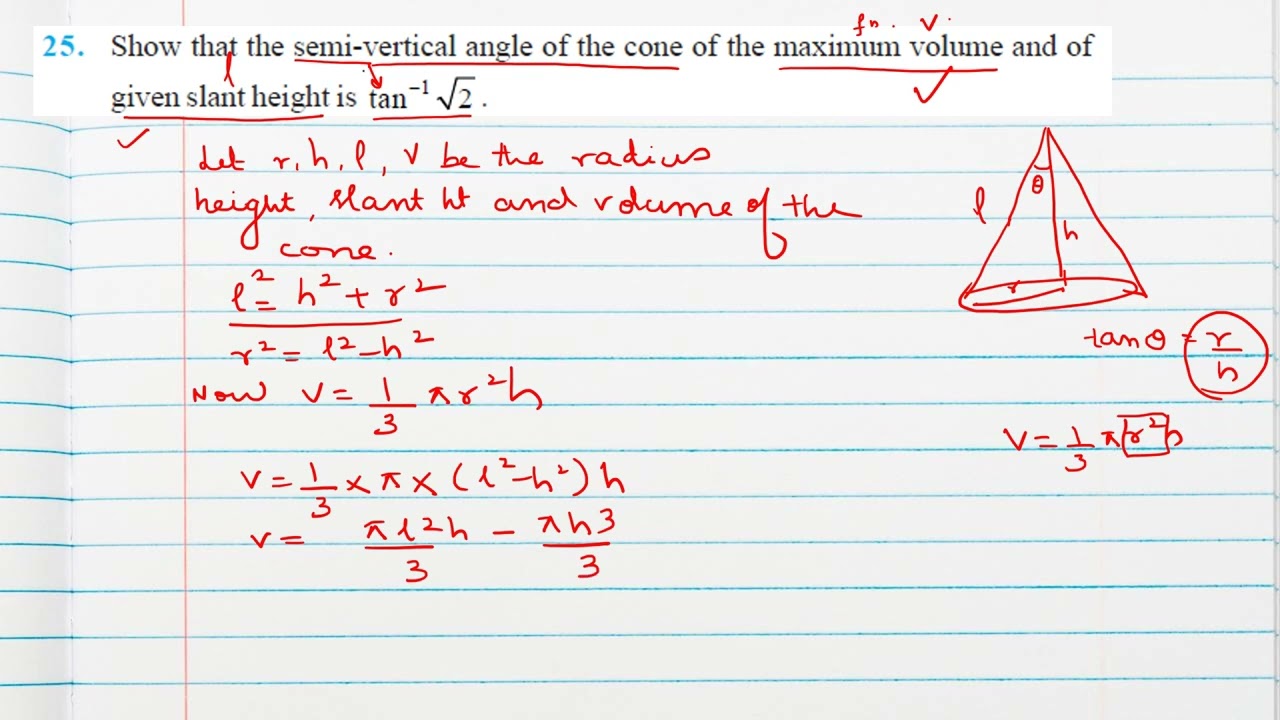 fn. V.
25. Show that the semi-vertical angle of the cone of the maximum volume and of
l
given slant height is tan⁻¹ √2 .
Let r, h, l, V be the radius
height, slant ht and volume of the
cone.
l² = h² + r²
r² = l² – h²
Now V = 1/3 π r² h
V = 1/3 × π × (l² – h²) h
V = πl²h/3 – πh3/3
θ
l
h
r
tan θ = r/h
V = 1/3 π r² h